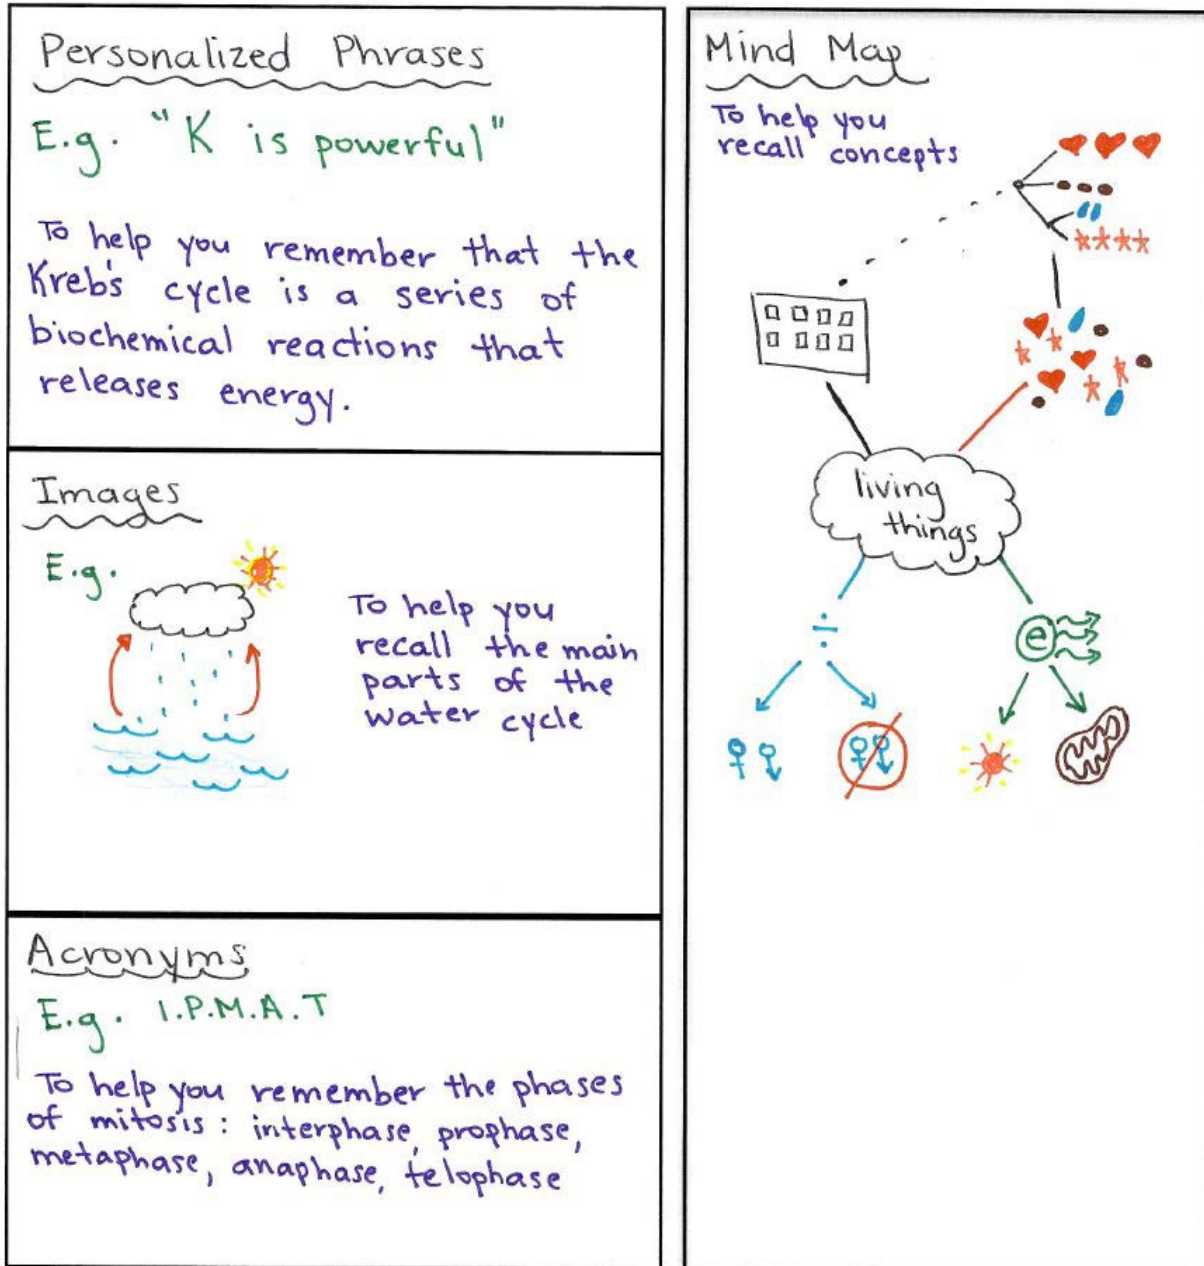 Personalized Phrases
E.g. "K is powerful"
To help you remember that the
Kreb's cycle is a series of
biochemical reactions that
releases energy.
Images
E.g.
To help you
recall the main
parts of the
water cycle
Acronyms
E.g. I.P.M.A.T
To help you remember the phases
of mitosis: interphase, prophase,
metaphase, anaphase, telophase
Mind Map
To help you
recall concepts
living
things
÷
e